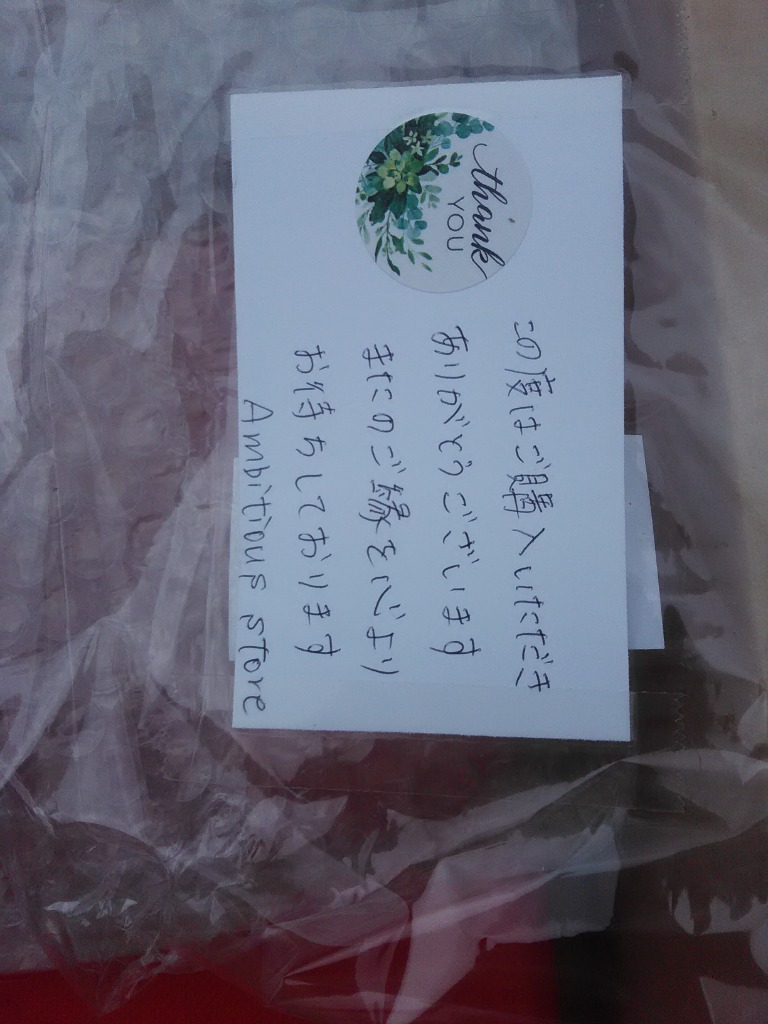 thank
YOU
この度はご購入いただき
ありがとうございます
またのご縁を心より
お待ちしております
Ambitious store